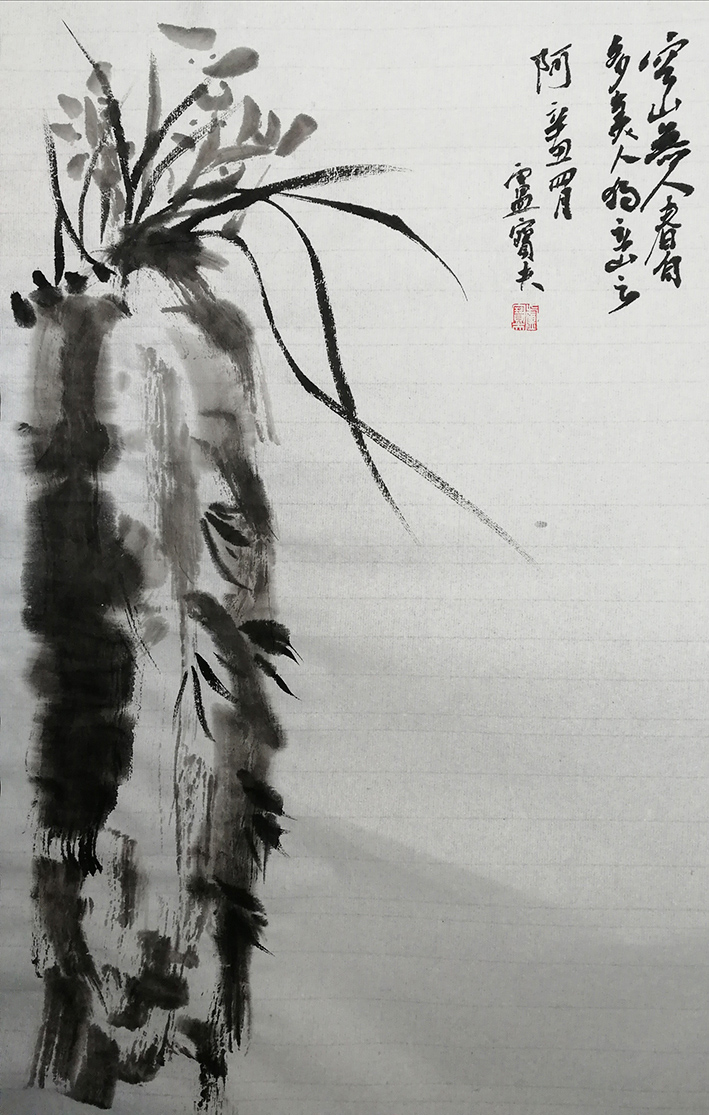 空山無人春自
多美人獨立山之
阿 辛丑四月
寶夫